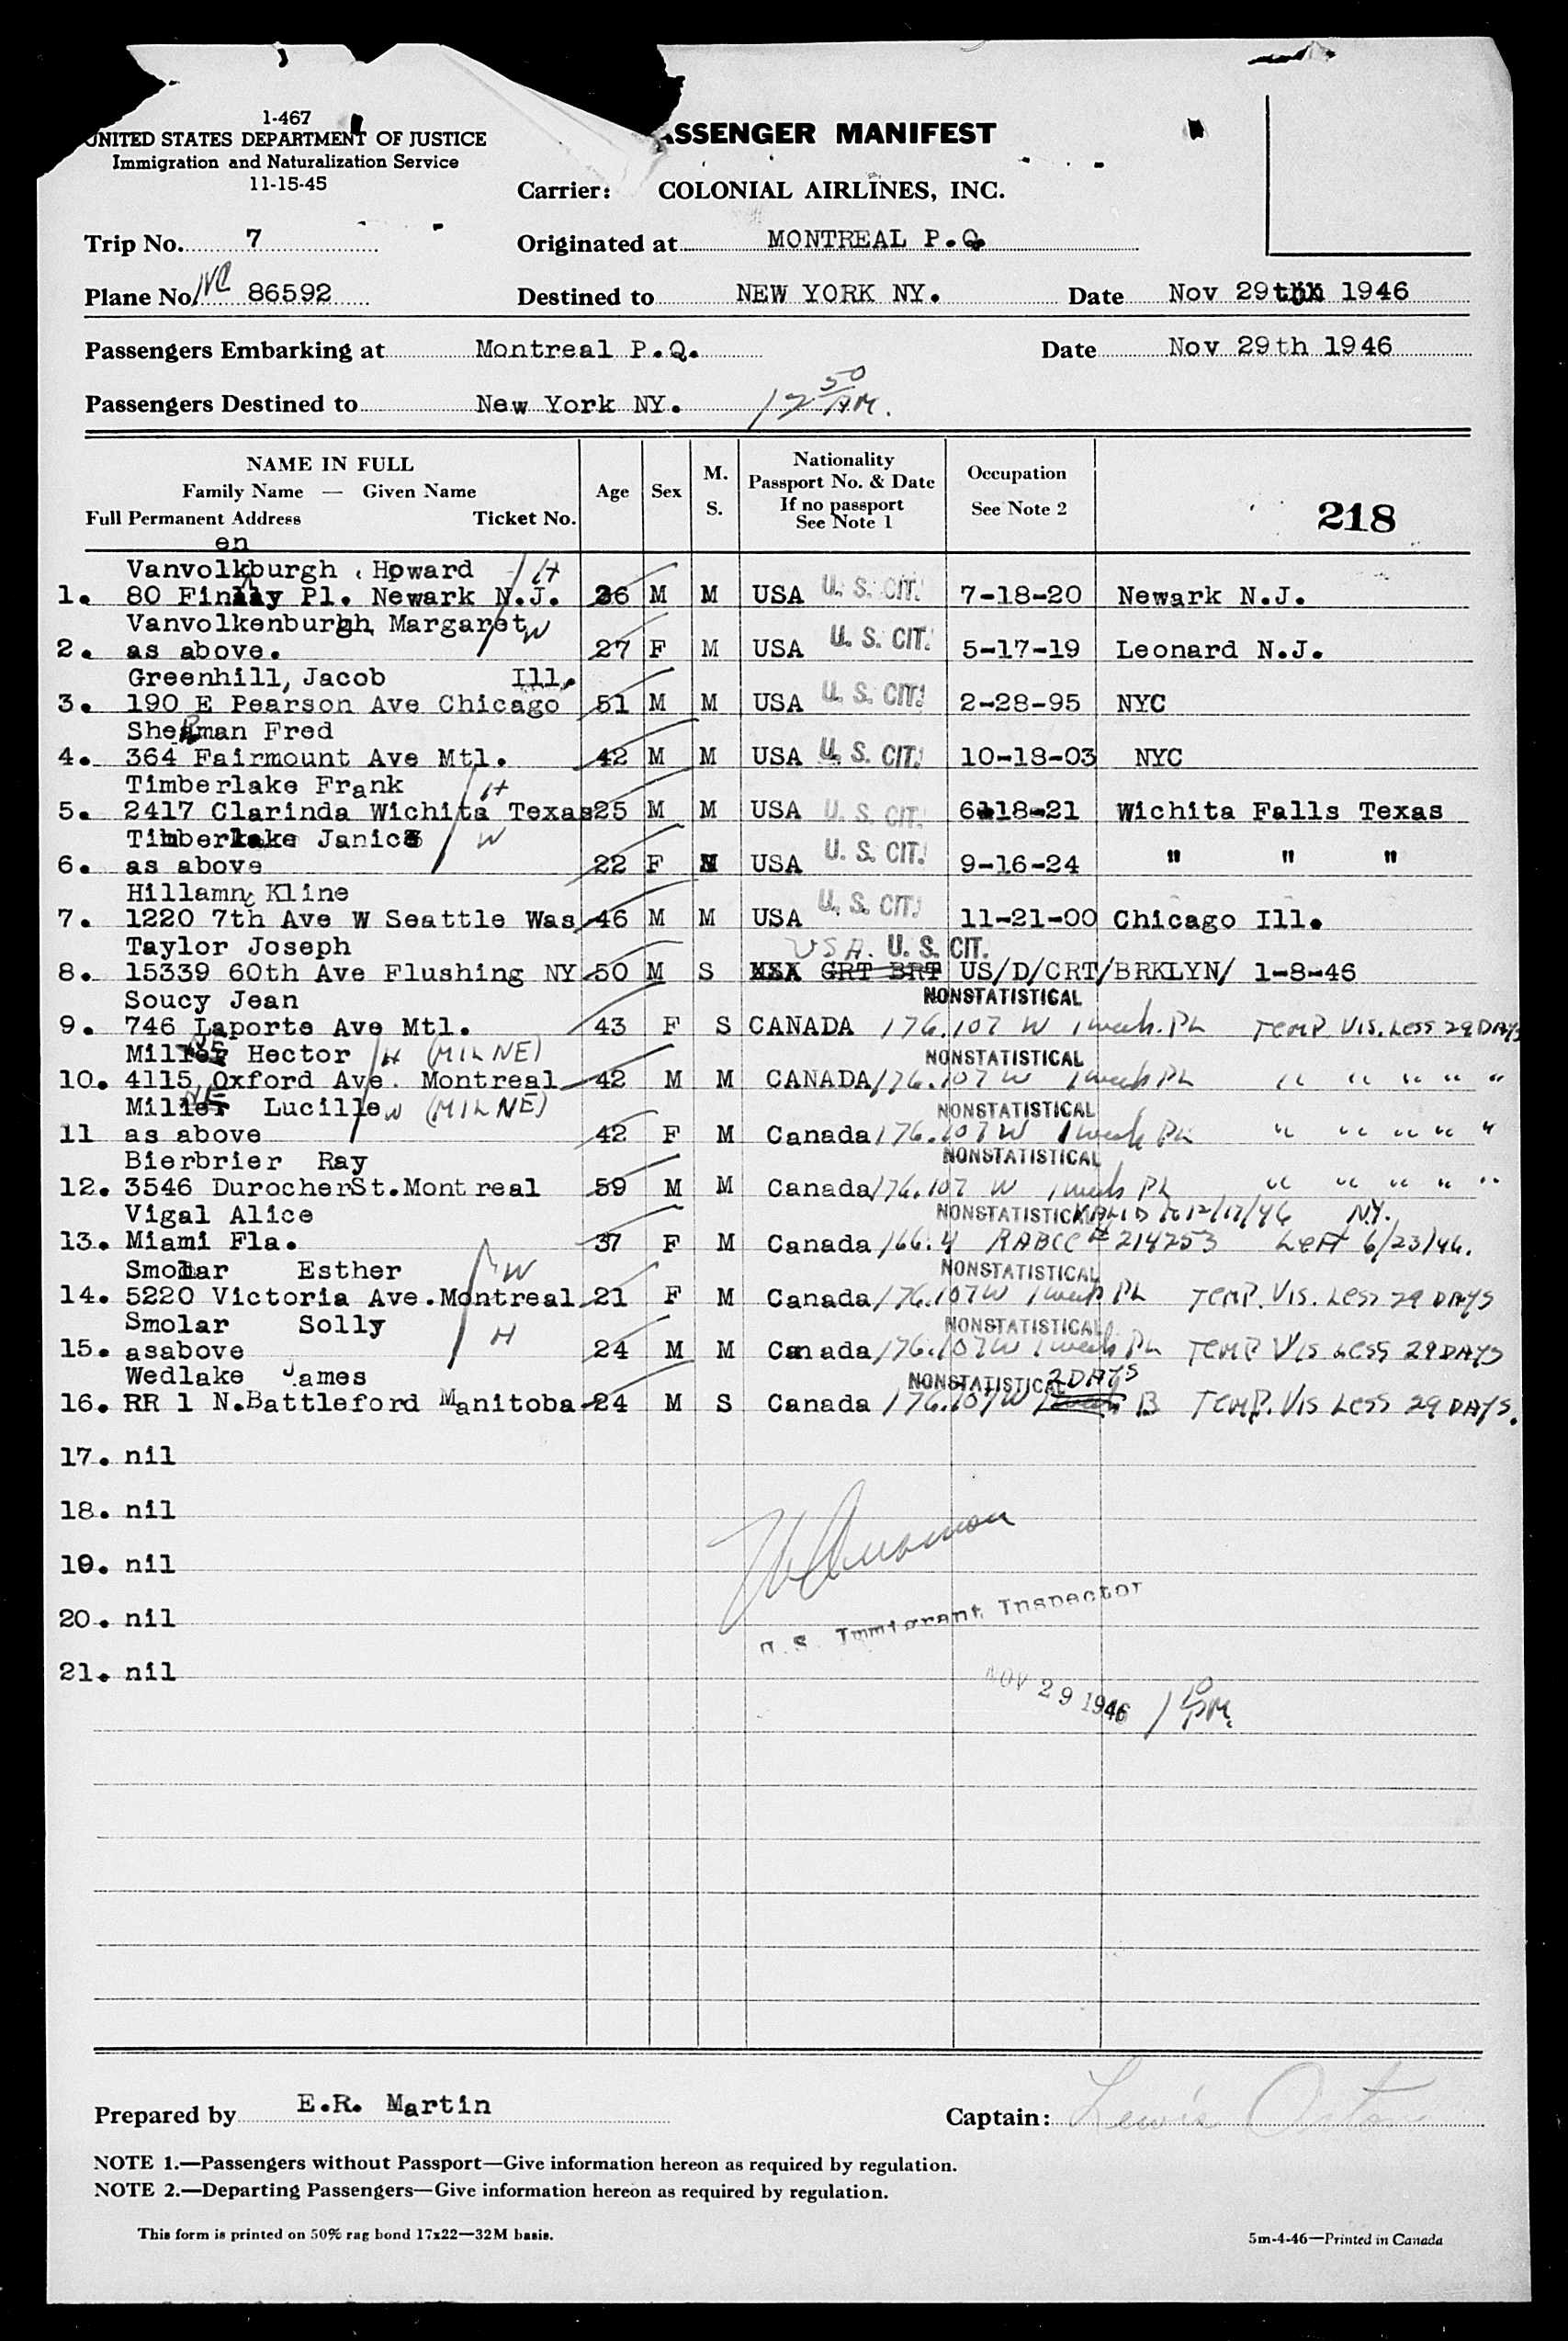 1-467
UNITED STATES DEPARTMENT OF JUSTICE
Immigration and Naturalization Service
11-15-45
ASSENGER MANIFEST
Carrier: COLONIAL AIRLINES, INC.
Trip No. 7 Originated at MONTREAL P.Q.
Plane No. NC 86592 Destined to NEW YORK NY. Date Nov 29th 1946
Passengers Embarking at Montreal P.Q. Date Nov 29th 1946
Passengers Destined to New York NY. 12 50 PM.
NAME IN FULL
Family Name — Given Name
Full Permanent Address Ticket No.
Age Sex M. S.
Nationality
Passport No. & Date
If no passport
See Note 1
Occupation
See Note 2
218
en
Vanvolkburgh, Howard H
1. 80 Finlay Pl. Newark N.J. 26 M M USA U. S. CIT. 7-18-20 Newark N.J.
Vanvolkenburgh, Margaret W
2. as above. 27 F M USA U. S. CIT. 5-17-19 Leonard N.J.
Greenhill, Jacob Ill.
3. 190 E Pearson Ave Chicago 51 M M USA U. S. CIT. 2-28-95 NYC
Sherman Fred
4. 364 Fairmount Ave Mtl. 42 M M USA U. S. CIT. 10-18-03 NYC
Timberlake Frank H
5. 2417 Clarinda Wichita Texas 25 M M USA U. S. CIT. 6-18-21 Wichita Falls Texas
Timberlake Janice W
6. as above 22 F M USA U. S. CIT. 9-16-24 " " "
Hillamn, Kline
7. 1220 7th Ave W Seattle Was 46 M M USA U. S. CIT. 11-21-00 Chicago Ill.
Taylor Joseph USA. U. S. CIT.
8. 15339 60th Ave Flushing NY 50 M S GRT BRT US/D/CRT/BRKLYN/ 1-8-46
Soucy Jean NONSTATISTICAL
9. 746 Laporte Ave Mtl. 43 F S CANADA 176.107 W 1 week. PL TEMP. VIS. LESS 29 DAYS
Milne Hector H (MILNE) NONSTATISTICAL
10. 4115, Oxford Ave. Montreal 42 M M CANADA 176.107 W 1 week PL " " " " "
Milne Lucille W (MILNE) NONSTATISTICAL
11 as above 42 F M Canada 176.107 W 1 week PL " " " " "
Bierbrier Ray NONSTATISTICAL
12. 3546 DurocherSt.Montreal 59 M M Canada 176.107 W 1 week PL " " " " "
Vigal Alice NONSTATISTICAL VALID to 12/17/46 N.Y.
13. Miami Fla. 37 F M Canada 166.4 RABCC # 214253 Left 6/23/46.
Smolar Esther W NONSTATISTICAL
14. 5220 Victoria Ave.Montreal 21 F M Canada 176.107W 1 week PL TEMP. VIS. Less 29 DAYS
Smolar Solly H NONSTATISTICAL
15. asabove 24 M M Canada 176.107W 1 week PL TEMP VIS Less 29 DAYS
Wedlake James NONSTATISTICAL 2 DAYS
16. RR 1 N.Battleford Manitoba 24 M S Canada 176.107W 1 week B TEMP. VIS Less 29 DAYS.
17. nil
18. nil
19. nil
20. nil
U. S. Immigrant Inspector
21. nil
NOV 29 1946 1 10 PM.
Prepared by E.R. Martin Captain: Lewis
NOTE 1.—Passengers without Passport—Give information hereon as required by regulation.
NOTE 2.—Departing Passengers—Give information hereon as required by regulation.
This form is printed on 50% rag bond 17x22—32M basis.
5m-4-46—Printed in Canada